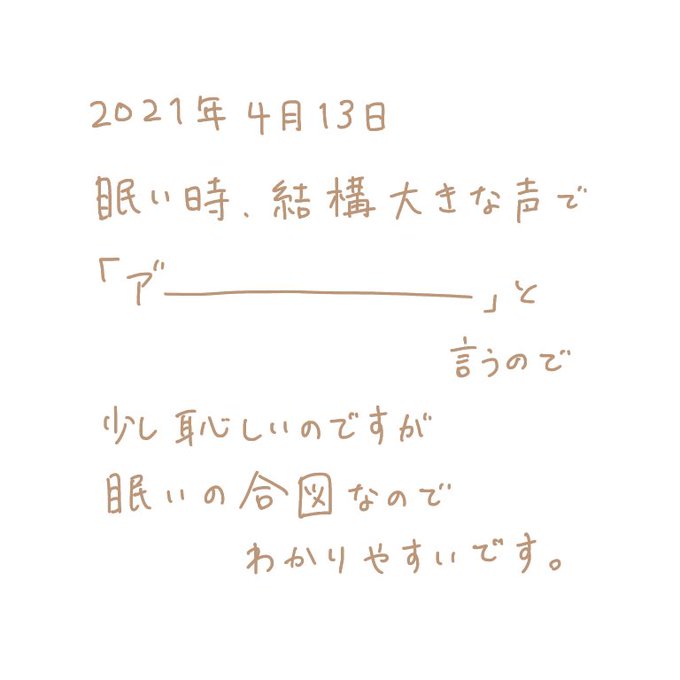 2021年4月13日
眠い時、結構大きな声で
「ア゛――――――」と
言うので
少し恥しいのですが
眠いの合図なので
わかりやすいです。